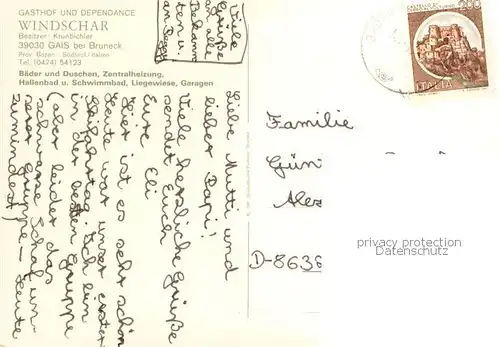 GASTHOF UND DEPENDANCE
WINDSCHAR
Besitzer: Kronbichler
39030 GAIS bei Bruneck
Prov. Bozen - Südtirol/Italien
Tel. (0474) 54123
Bäder und Duschen, Zentralheizung,
Hallenbad u. Schwimmbad, Liegewiese, Garagen
Viele
Grüße
an alle
Bekannten u.
Liebe Mutti und
lieber Papi!
Viele herzliche Grüße
sendet Euch
Eure Eli
Hier ist es sehr schön
Heute war unser erster
Skifahrtag. Ich bin
in der besten Gruppe
(aber leider das
schwarze Schaf un-
serer Gruppe -
zumindest heute
Familie
Gün
Alex
D-8636
200
ITALIA
privacy protection
Datenschutz